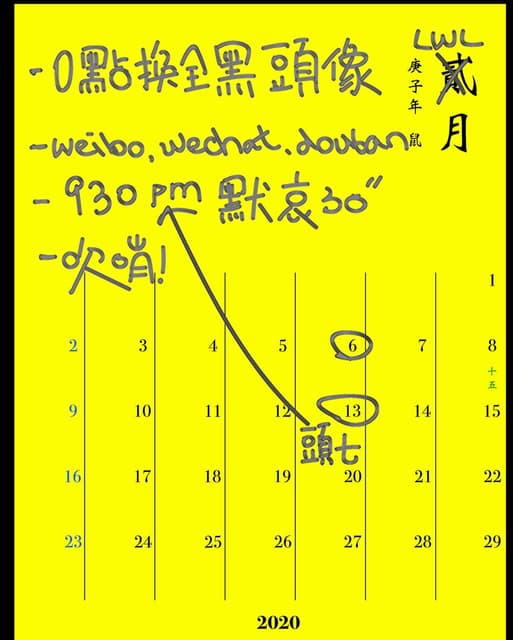 LWL
-0點換全黑頭像
庚子年 鼠
貳月
-weibo, wechat, douban
-930 pm 默哀30"
-吹哨!
1
2 3 4 5 6 7 8
十五
9 10 11 12 13 14 15
頭七
16 17 18 19 20 21 22
23 24 25 26 27 28 29
2020